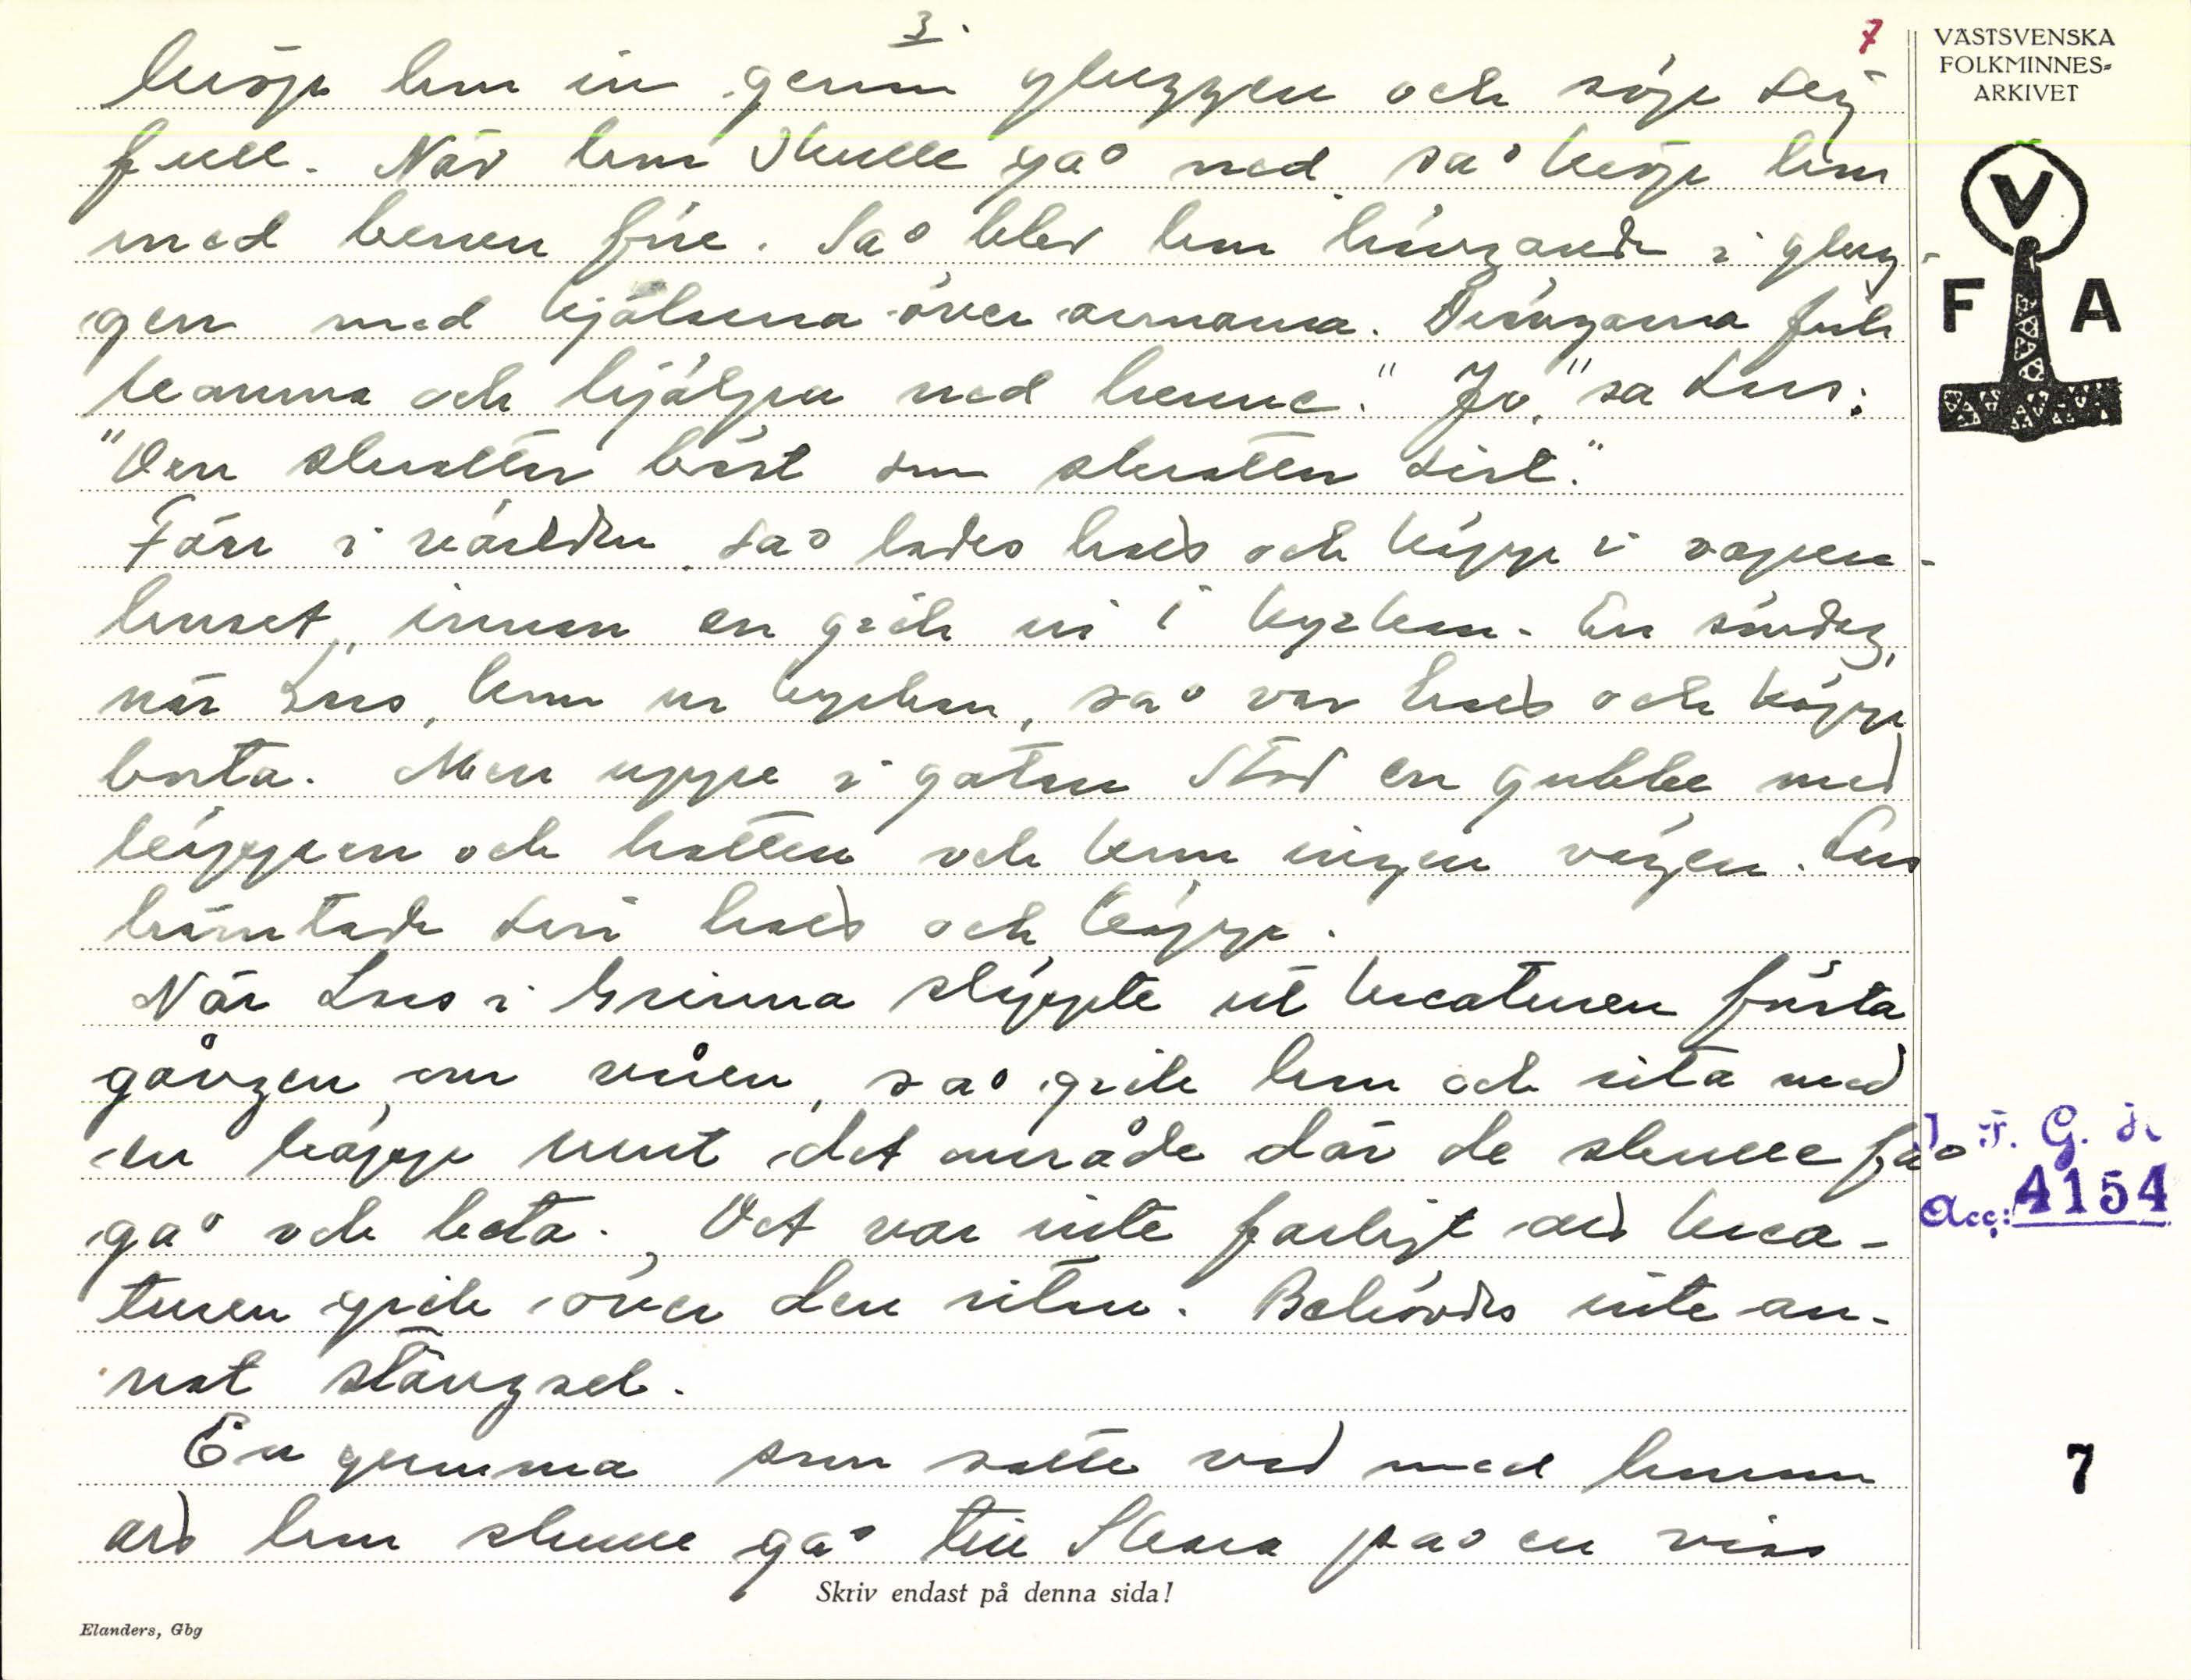 3.
7
kröp hon in genom gluggen och söp sig
full. När hon skulle gå ned så kröp hon
med benen före. Så blev hon hängande i glug-
gen med kjolarna över armarna. Drängarna fick
komma och hjälpa ned henne. "Jo," sa Lars:
"Den skrattar bäst som skrattar sist."
Förr i världen så lades hatt och käpp i vapen-
huset, innan en gick in i kyrkan. En söndag,
när Lars kom ur kyrkan, så var hatt och käpp
borta. Men uppe i gatan stod en gubbe med
käppen och hatten och kom ingen vägen. Lars
hämtade sin hatt och käpp.
När Lars i Grinna släppte ut kreaturen första
gången om våren, så gick han och rita med
en käpp runt det område där de skulle få
gå och beta. Det var inte farligt att krea-
turen gick över den ritan. Behövdes inte an-
nat stängsel.
En gumma som satte vad med honom
att hon skulle gå till Skara på en viss
Skriv endast på denna sida!
Elanders, Gbg
VÄSTSVENSKA
FOLKMINNES-
ARKIVET
V
F A
I. F. G. H.
Acc: 4154
7